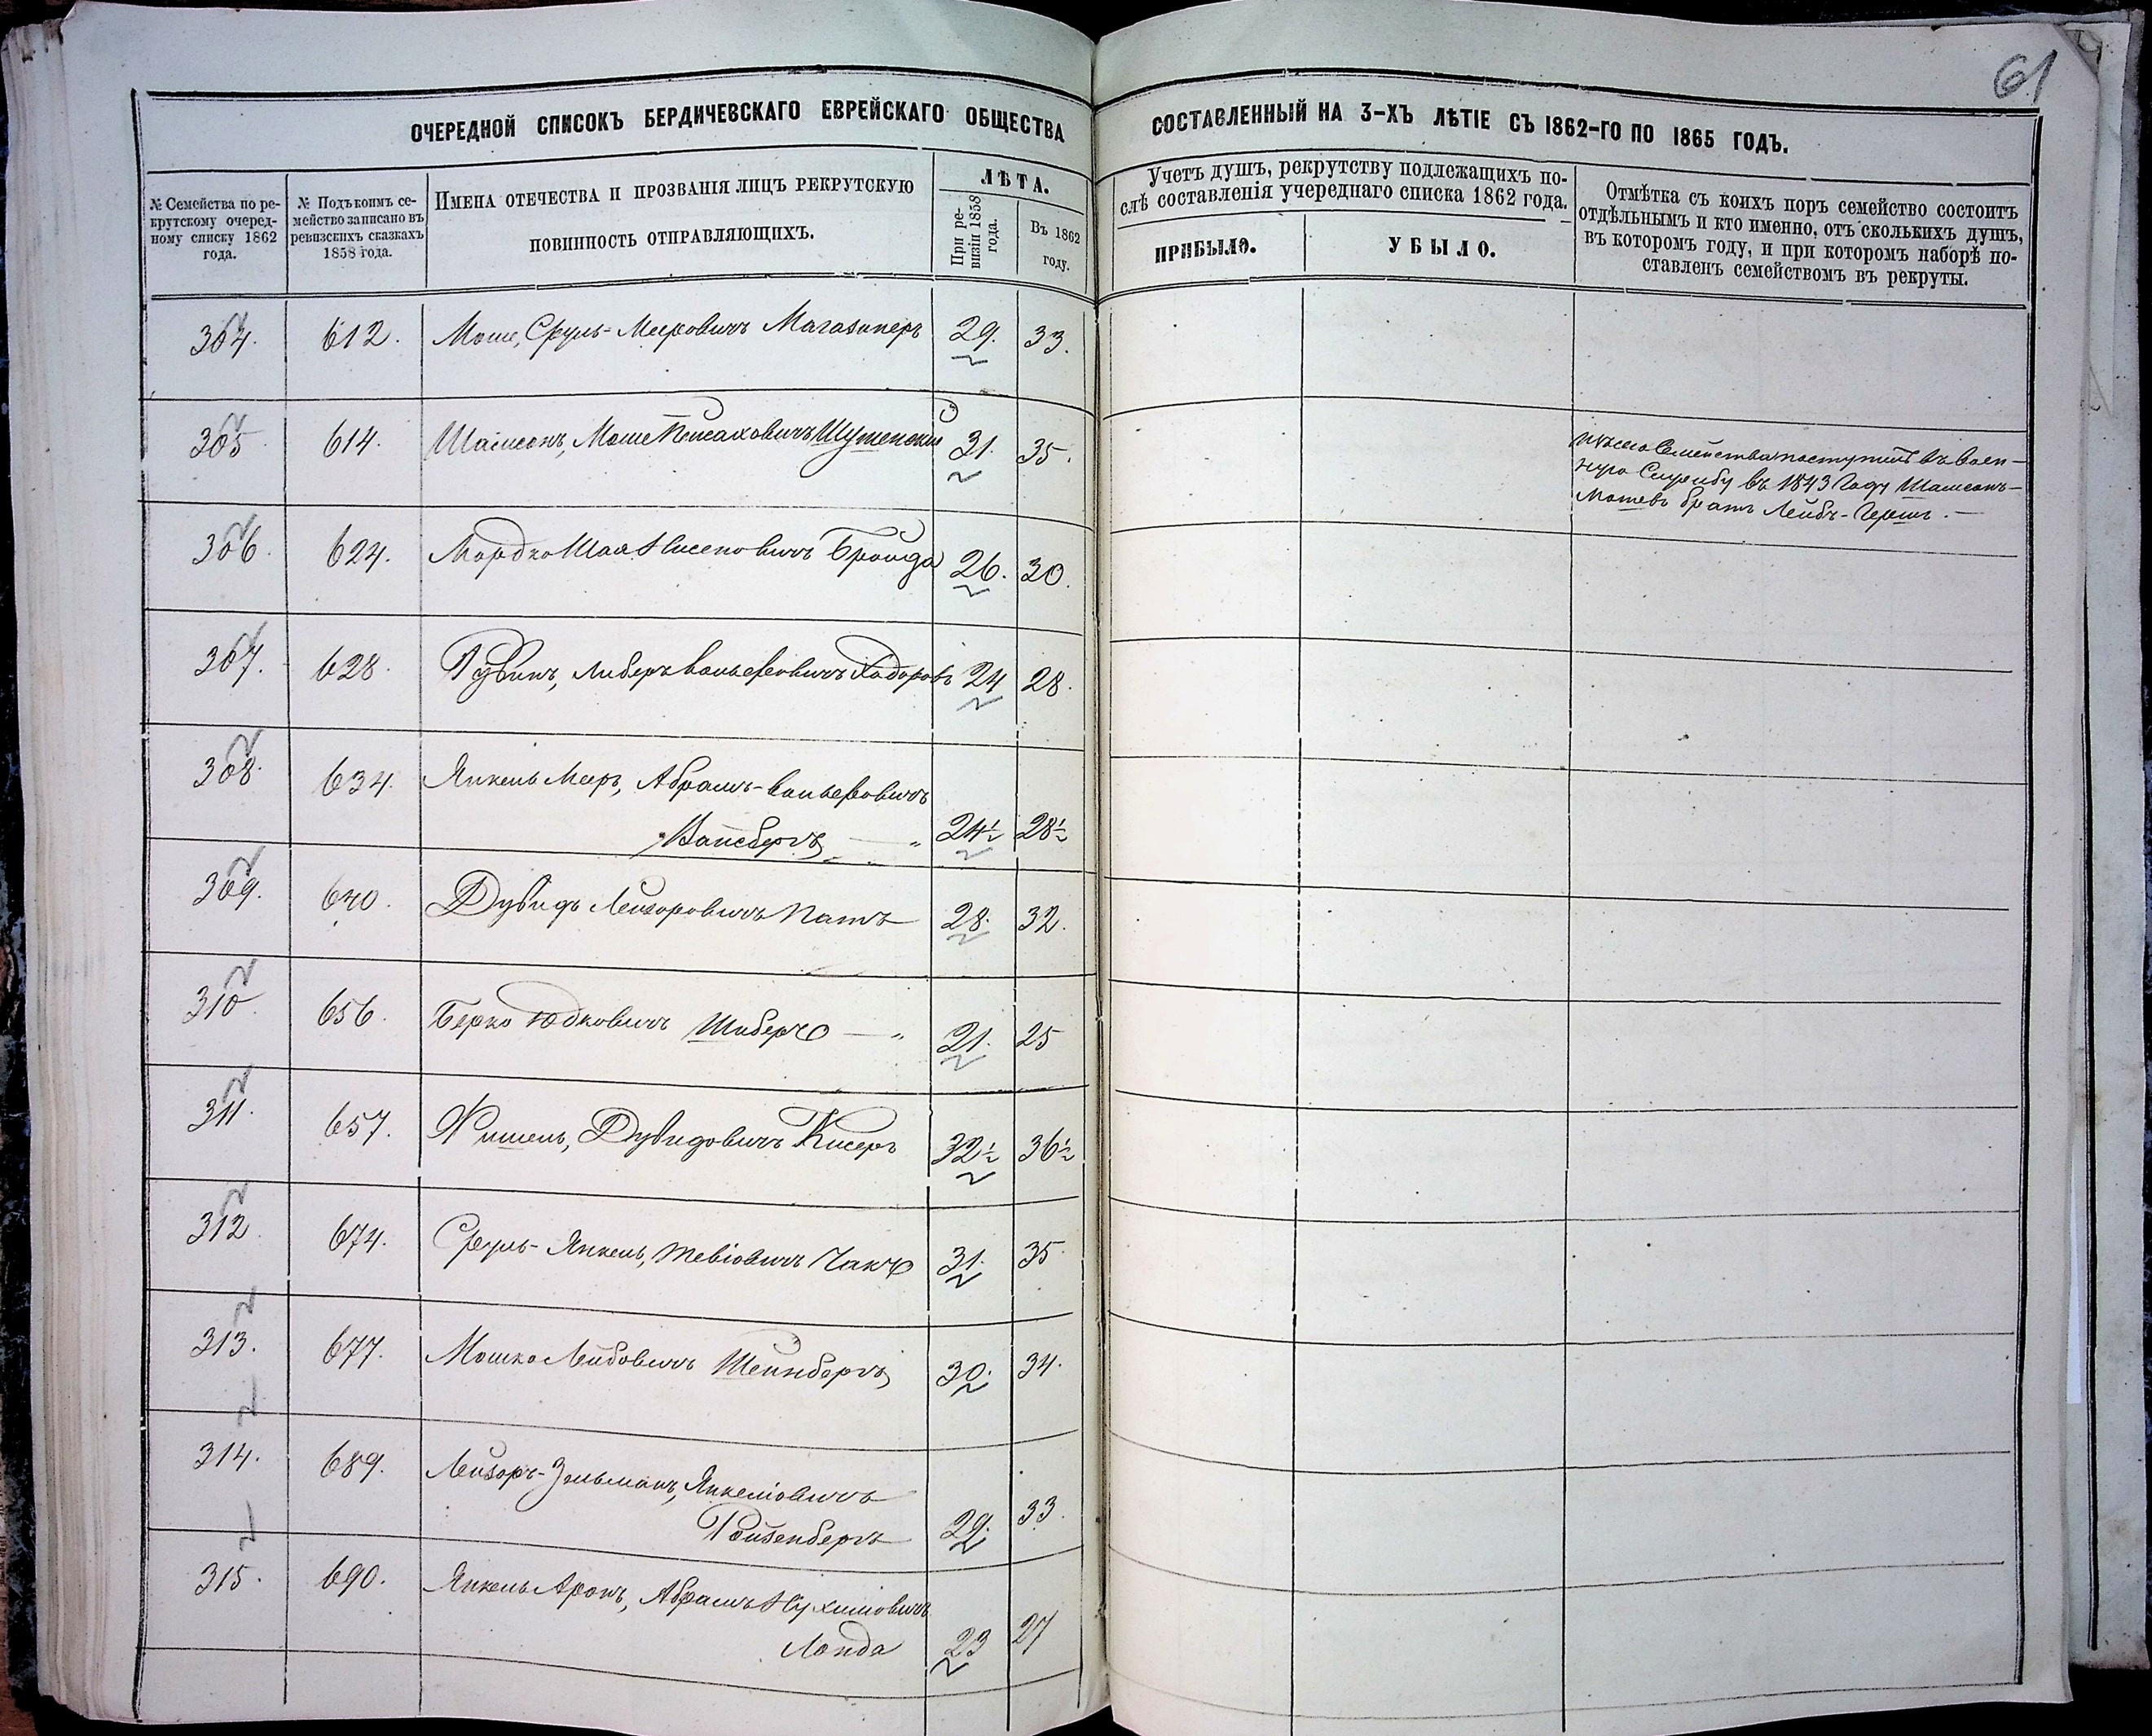 61
ОЧЕРЕДНОЙ СПИСОКЪ БЕРДИЧЕВСКАГО ЕВРЕЙСКАГО ОБЩЕСТВА
СОСТАВЛЕННЫЙ НА 3-ХЪ ЛѢТІЕ СЪ 1862-ГО ПО 1865 ГОДЪ.
№ Семейства по ре-
крутскому очеред-
ному списку 1862
года.
№ Подъ коимъ се-
мейство записано въ
ревизскихъ сказкахъ
1858 года.
ИМЕНА ОТЕЧЕСТВА И ПРОЗВАНІЯ ЛИЦЪ РЕКРУТСКУЮ
ПОВИННОСТЬ ОТПРАВЛЯЮЩИХЪ.
ЛѢТА.
При ре-
визіи 1858
года.
Въ 1862
году.
Учетъ душъ, рекрутству подлежащихъ по-
слѣ составленія учереднаго списка 1862 года.
ПРИБЫЛО.
УБЫЛО.
Отмѣтка съ коихъ поръ семейство состоитъ
отдѣльнымъ и кто именно, отъ сколькихъ душъ,
въ которомъ году, и при которомъ наборѣ по-
ставленъ семействомъ въ рекруты.
304. 612. Моше, Сруль-Мееровичъ Магазинеръ 29. 33.
305 614. Шамсонъ, Моше Пейсаховичъ 31. 35.
Семейства поступилъ въ воен-
ную Службу въ 1843 Году Шамсонъ-
Мошевъ братъ Лейбъ-Гершъ.
306. 624. Мордко Шая Нисеновичъ Бройда 26. 30.
307. 628. Рувинъ, Либеръ Вольфовичъ Ходоровъ 24 28.
308. 634. Янкель Меръ, Абрамъ-Вольфовичъ
Вайсбергъ 24½ 28½
309. 640. Дувидъ Лейзоровичъ Патъ 28. 32.
310. 656. Берко Юдковичъ Шиберъ 21. 25
311. 657. Фишель, Дувидовичъ Кисеръ 32½ 36½
312 674. Сруль-Янкель, Тевіовичъ Чакъ 31. 35
313. 677. Мошко Лейбовичъ Шейнбергъ 30. 34.
314. 689. Лейзоръ-Зельманъ, Янкеліовичъ
Ройзенбергъ 29. 33.
315. 690. Янкель Аронъ, Абрамъ Нухимовичъ
Ланда 23 27